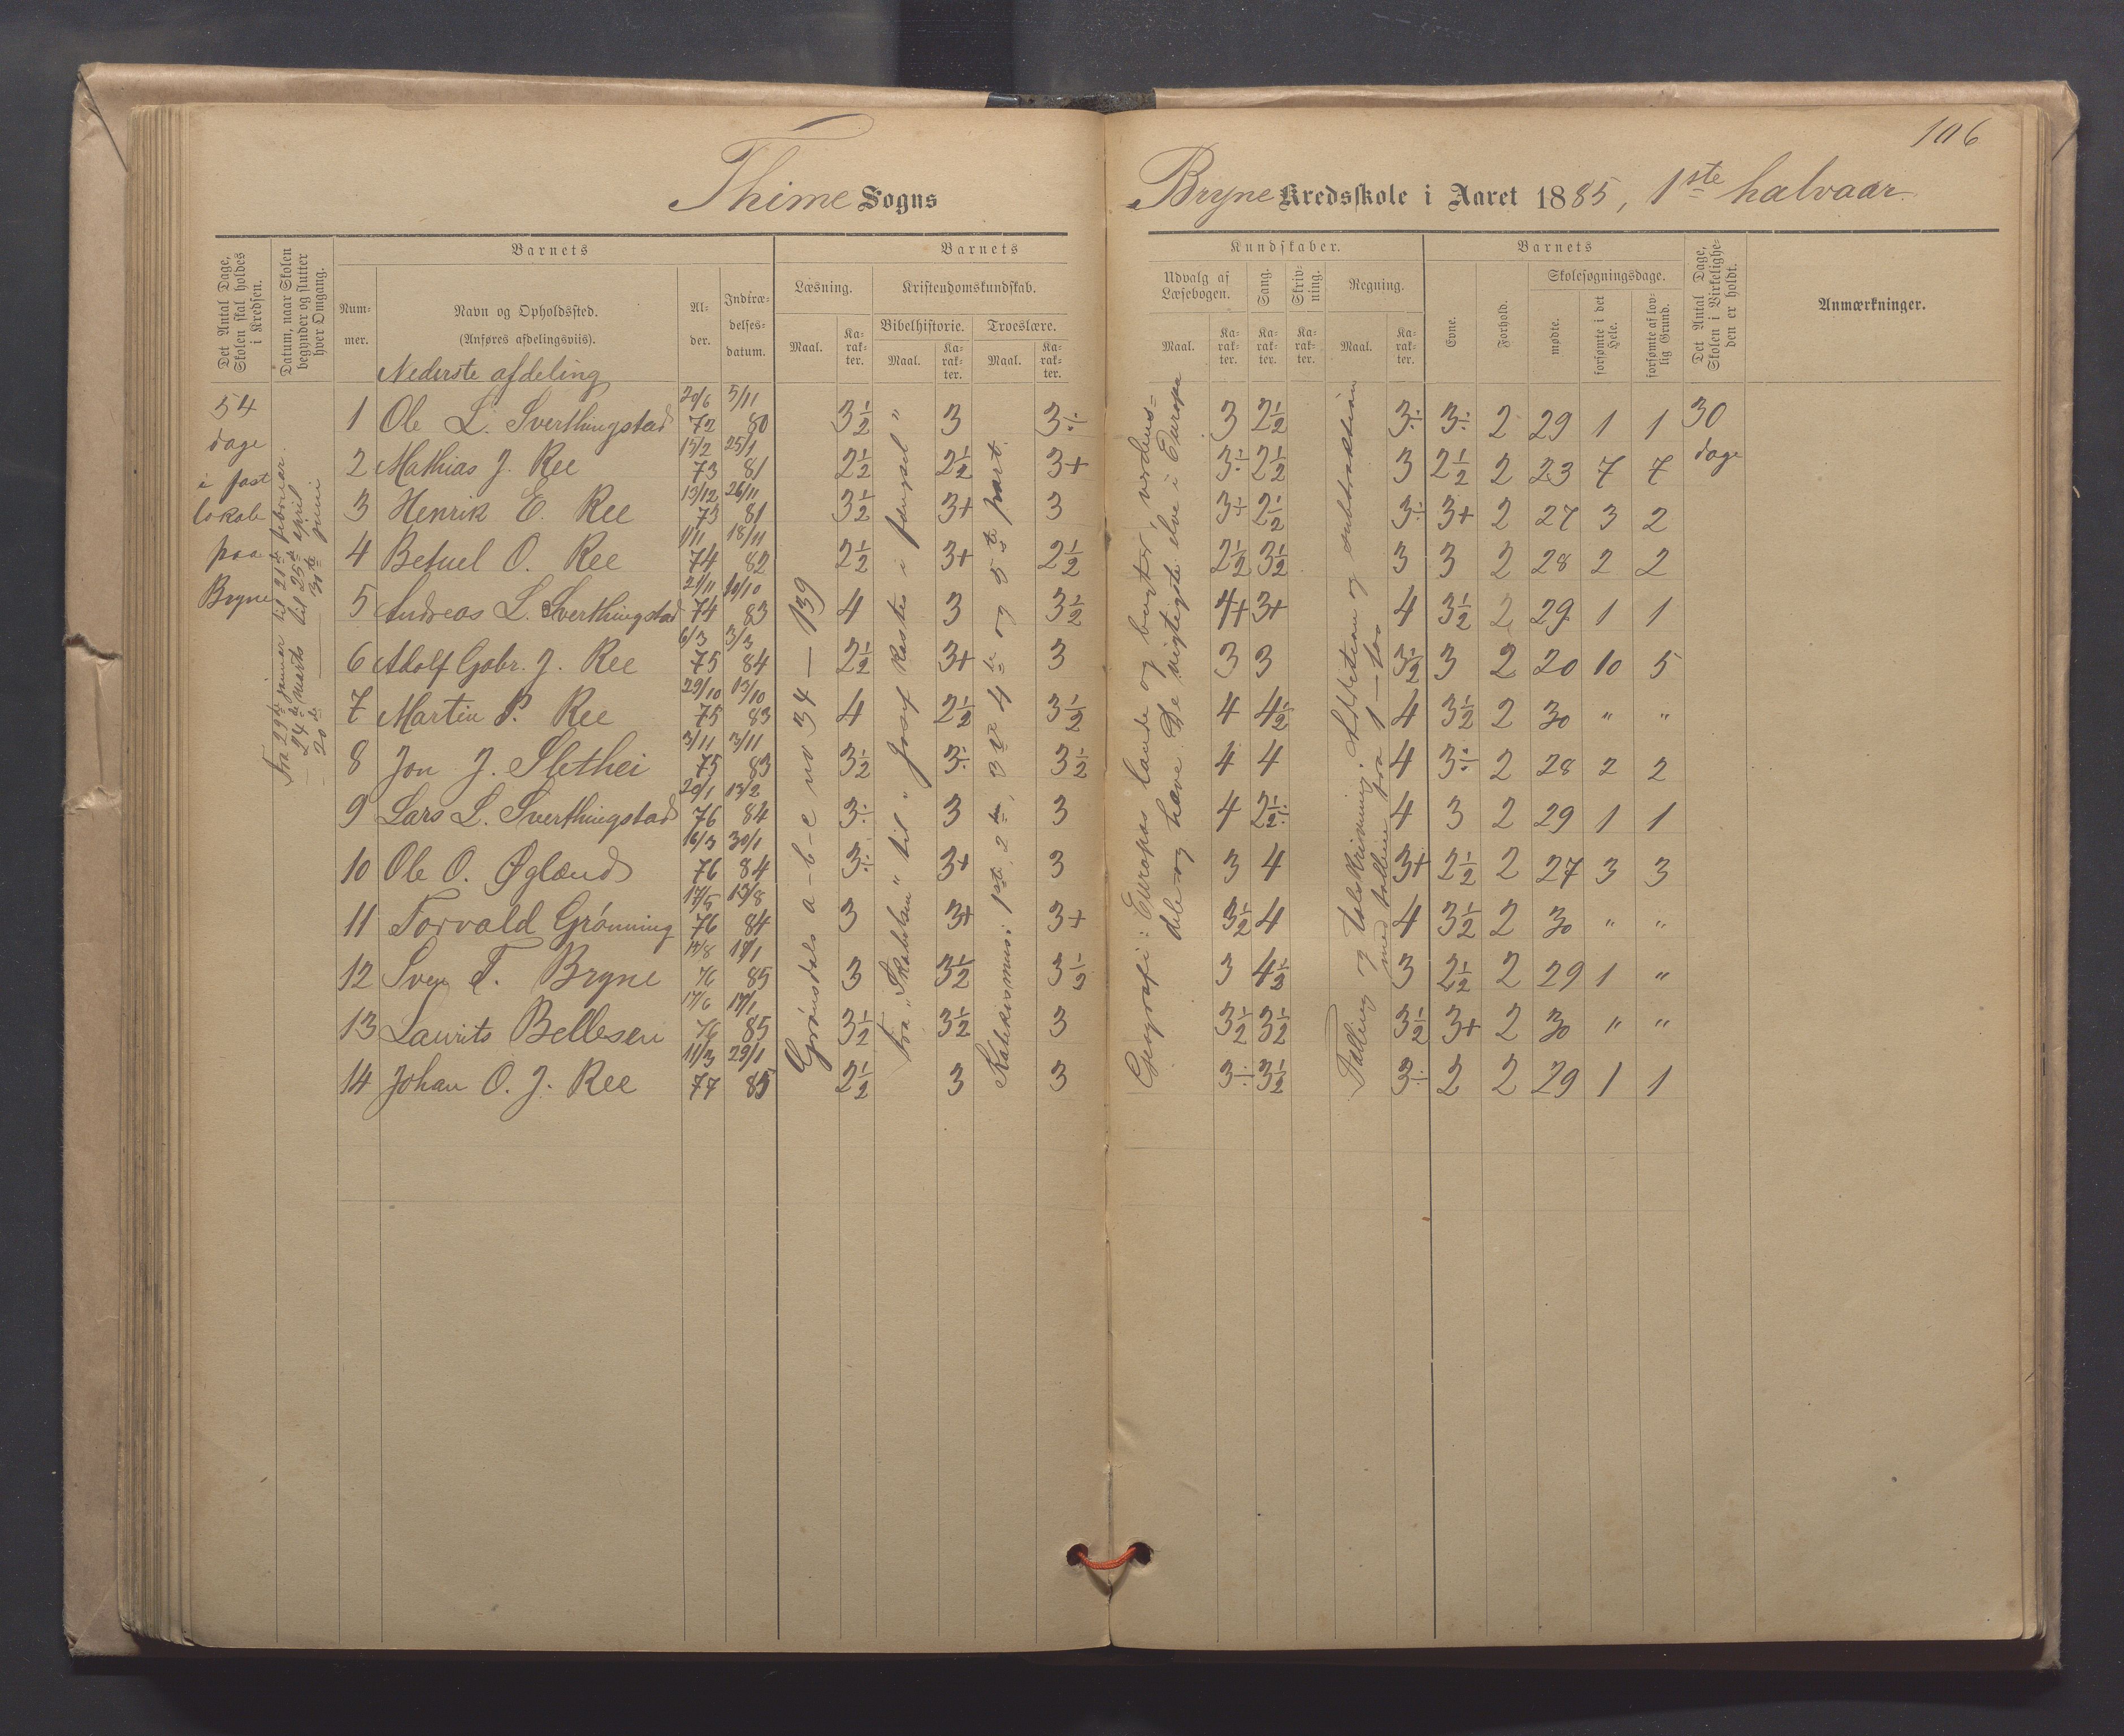 106
Thime Sogns
Bryne Kredsskole i Aaret 1885, 1ste halvaar.
Det Antal Dage, Skolen skal holdes i Kredsen.
Datum, naar Skolen begynder og slutter hver Omgang.
Barnets
Num-mer.
Navn og Opholdssted.
(Anføres afdelingsviis).
Al-der.
Indtræ-delses-datum.
Barnets
Læsning.
Maal.
Ka-rak-ter.
Kristendomskundskab.
Bibelhistorie.
Maal.
Ka-rak-ter.
Troeslære.
Maal.
Ka-rak-ter.
Kundskaber.
Udvalg af Læsebogen.
Maal.
Ka-rak-ter.
Sang.
Ka-rak-ter.
Skriv-ning.
Ka-rak-ter.
Regning.
Maal.
Ka-rak-ter.
Barnets
Evne.
Forhold.
Skolesøgningsdage.
mødte.
forsømte i det Hele.
forsømte af lov-lig Grund.
Det Antal Dage, Skolen i Virkelighe-den er holdt.
Anmærkninger.
Nederste afdeling
54
dage
i fast
lokale
paa
Bryne
Fra 29de januar til 21de februar.
— 24de marts til 25de april
— 20de — 30te juni
Grønsdals a-b-c no 34 — 139
Fra "Skabelsen" til "Josef kastes i fængsel"
Katekismus: 1ste, 2den, 3die 4de og 5te part.
Geografi: Europas lande og byster, verdens-
dele og have. De vigtigste elve i Europa
Tælling og talskrivning. Addition og subtraktion
med tallene fra 1 — 100
1 Ole L. Sverthingstad 20/6 72 5/11 80 3½ 3 3÷ 3 2½ 3÷ 3÷ 2 29 1 1 30
dage
2 Mathias J. Ree 15/2 73 25/1 81 2½ 2½ 3+ 3÷ 2½ 3 2½ 2 23 7 7
3 Henrik E. Ree 13/12 73 26/11 81 3½ 3+ 3 3÷ 2½ 3÷ 3+ 2 27 3 2
4 Betuel O. Ree 1/11 74 18/11 82 2½ 3+ 2½ 2½ 3½ 3 3 2 28 2 2
5 Andreas L. Sverthingstad 21/11 74 10/10 83 4 3 3½ 4+ 3+ 4 3½ 2 29 1 1
6 Adolf Gabr. J. Ree 6/3 75 3/3 84 2½ 3+ 3 3 3 3½ 3 2 20 10 5
7 Martin P. Ree 29/10 75 13/10 83 4 2½ 3½ 4 4½ 4 3½ 2 30 " "
8 Jon J. Slethei 3/11 75 3/11 83 3½ 3÷ 3½ 4 4 4 3÷ 2 28 2 2
9 Lars L. Sverthingstad 20/1 76 13/2 84 3÷ 3 3 4 2½÷ 4 3 2 29 1 1
10 Ole O. Øglænd 16/3 76 30/1 84 3÷ 3+ 3 3 4 3+ 2½ 2 27 3 3
11 Torvald Grønning 17/5 76 13/8 84 3 3+ 3+ 3½ 4 4 3½ 2 30 " "
12 Sven T. Bryne 14/8 76 17/1 85 3 3½ 3½ 3 4½ 3 2½ 2 29 1 "
13 Laurits Bellesen 17/6 76 17/1 85 3½ 3½ 3 3½ 3½ 3½ 3+ 2 30 " "
14 Johan O. J. Ree 11/3 77 29/1 85 2½ 3 3 3÷ 3½ 3÷ 2 2 29 1 1